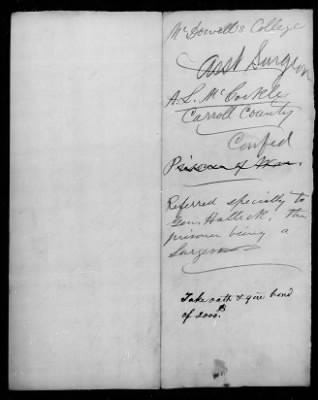 McDowell's College
Asst Surgeon
A. L. McCorkle
Carroll County
Confed
Prisoner of War.
Referred specially to
Genl Halleck, the
prisoner being a
Surgeon
Take oath & give bond
of 2000.$